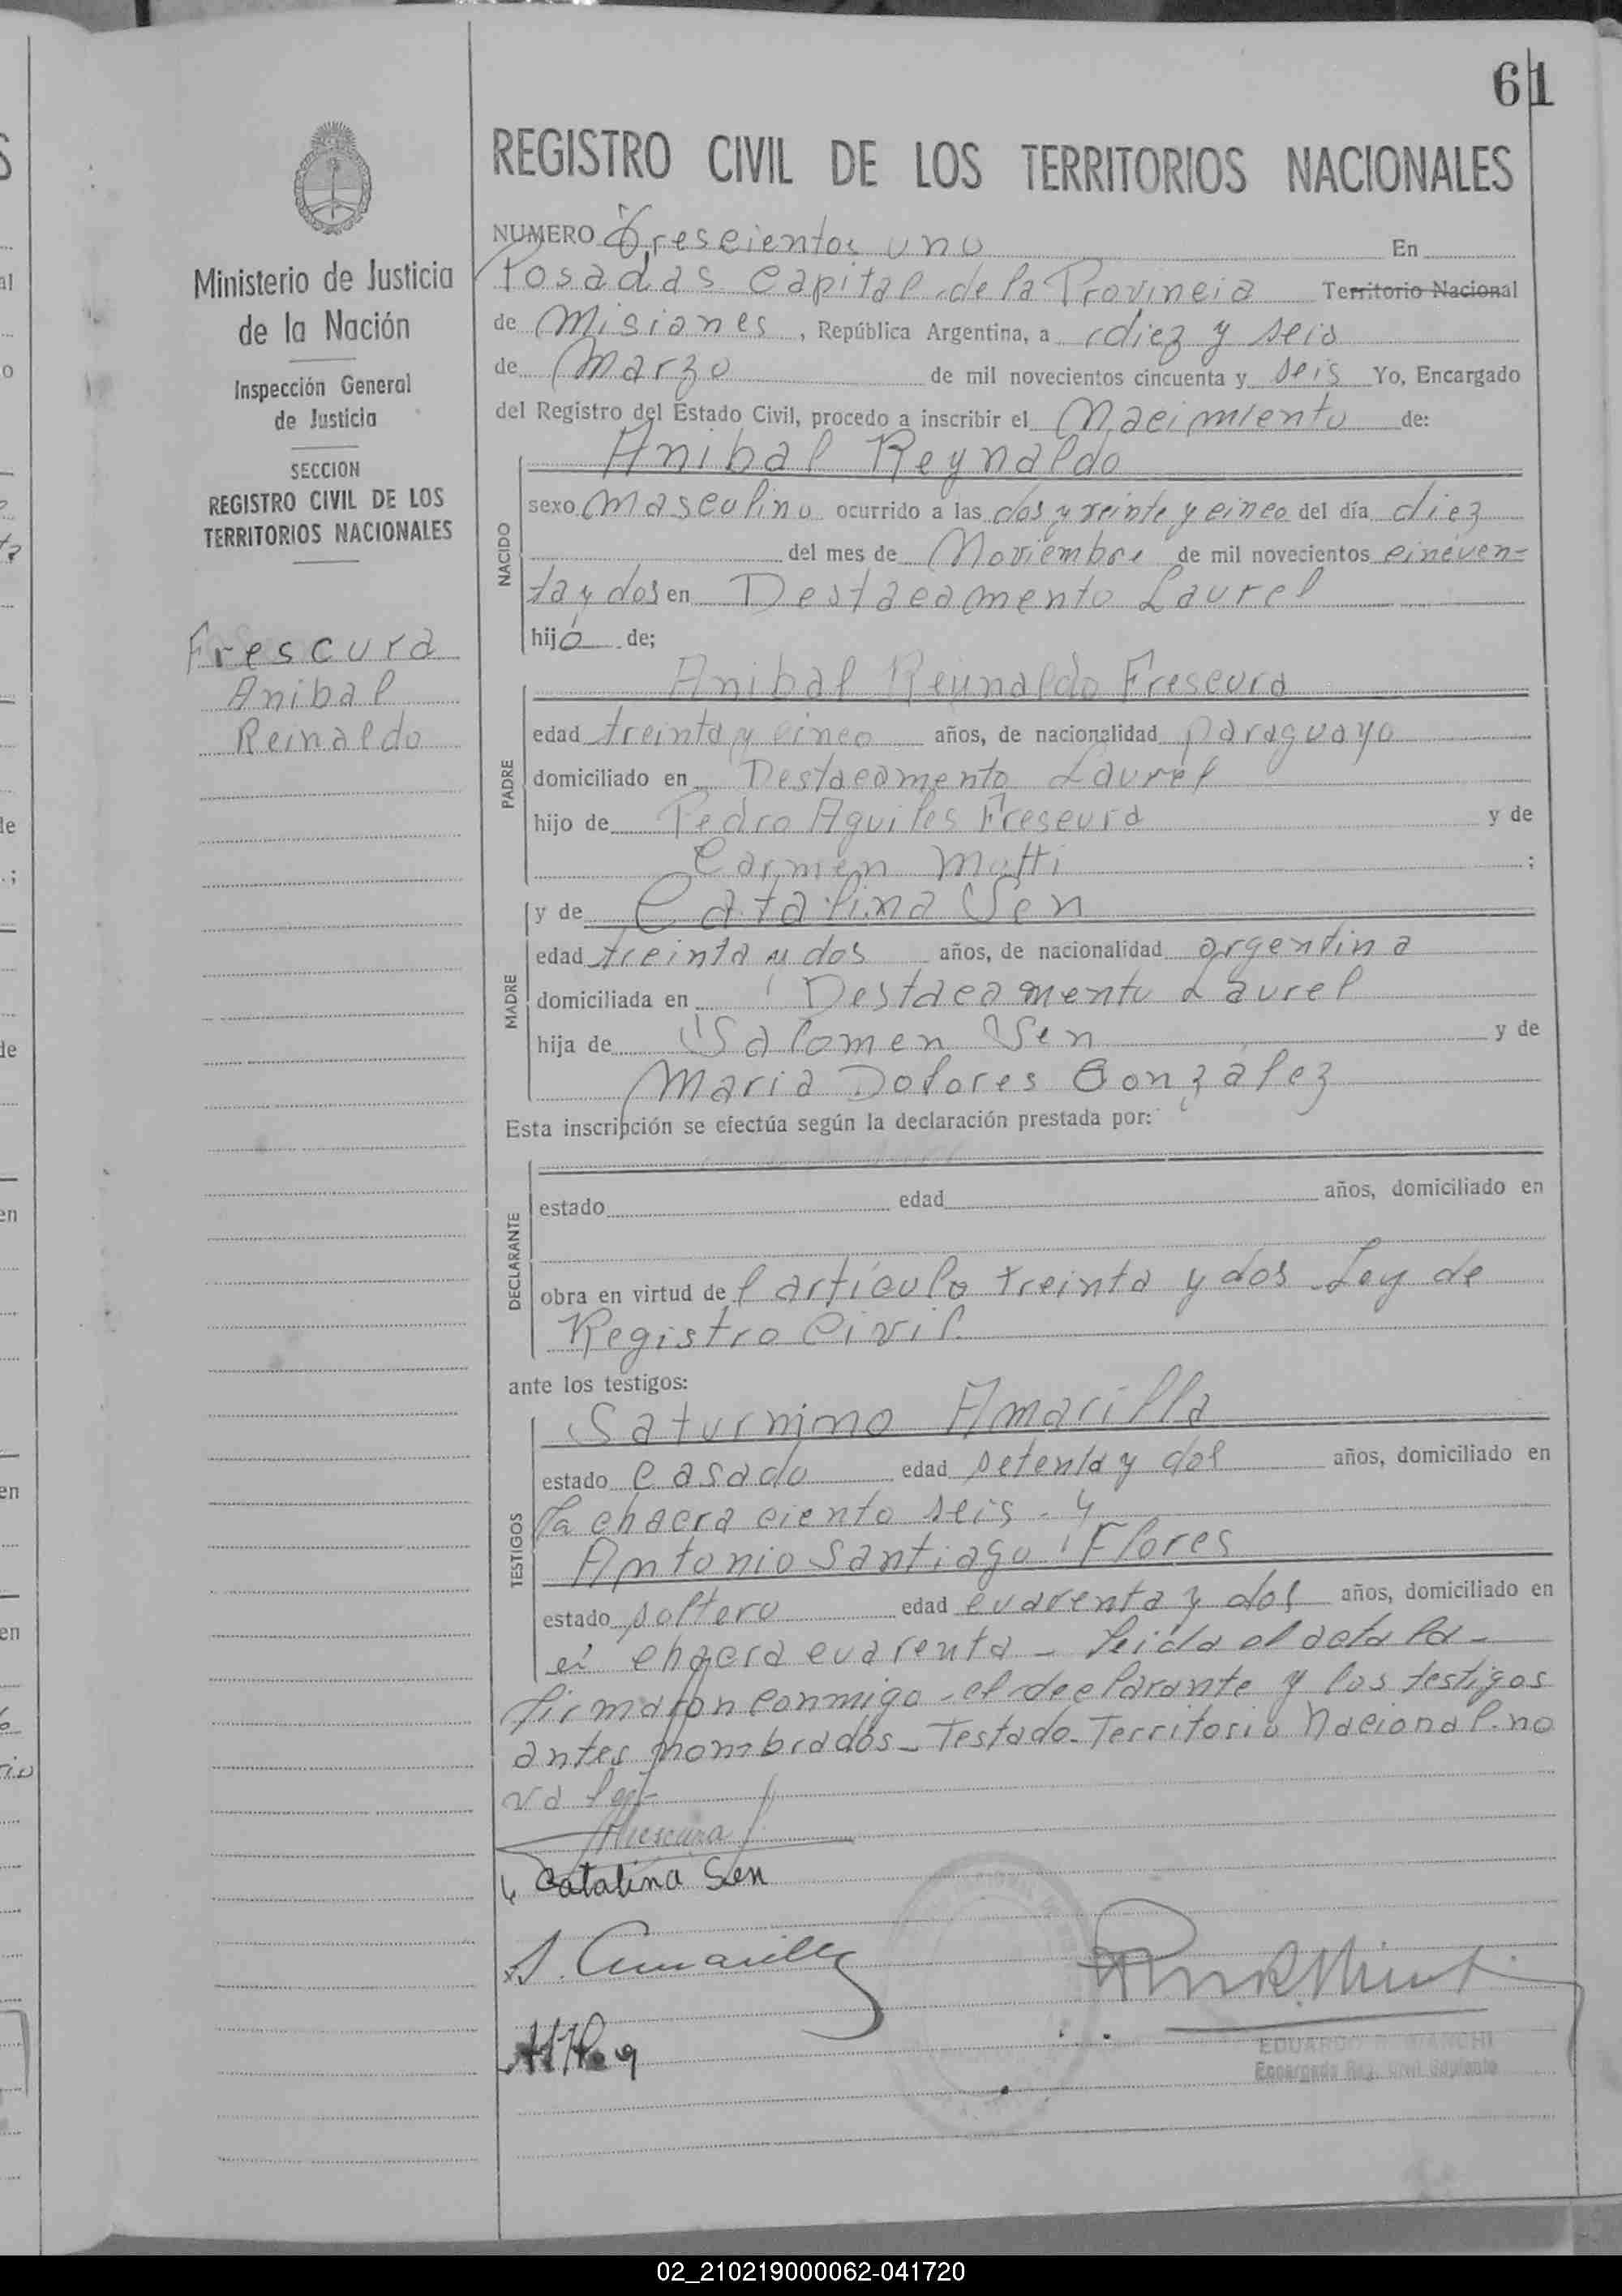 61
REGISTRO CIVIL DE LOS TERRITORIOS NACIONALES
Ministerio de Justicia
de la Nación
Inspección General
de Justicia
SECCION
REGISTRO CIVIL DE LOS
TERRITORIOS NACIONALES
Frescura
Anibal
Reinaldo
NUMERO Trescientos uno En
Posadas Capital de la Provincia Territorio Nacional
de Misiones, República Argentina, a diez y seis
de Marzo de mil novecientos cincuenta y seis Yo, Encargado
del Registro del Estado Civil, procedo a inscribir el Nacimiento de:
Anibal Reynaldo
NACIDO
sexo Masculino ocurrido a las dos y veinte y cinco del día diez
del mes de Noviembre de mil novecientos cincuen=
ta y dos en Destacamento Laurel
hijo de;
Anibal Reynaldo Frescura
PADRE
edad treinta y cinco años, de nacionalidad paraguayo
domiciliado en Destacamento Laurel
hijo de Pedro Aquiles Frescura y de
Carmen Motti ;
y de Catalina Sen
MADRE
edad treinta y dos años, de nacionalidad argentina
domiciliada en Destacamento Laurel
hija de Salomen Sen y de
Maria Dolores González
Esta inscripción se efectúa según la declaración prestada por:
DECLARANTE
estado edad años, domiciliado en
obra en virtud del artículo treinta y dos Ley de
Registro Civil.
ante los testigos:
Saturnino Amarilla
TESTIGOS
estado casado edad setenta y dos años, domiciliado en
la chacra ciento seis - y
Antonio Santiago Flores
estado soltero edad cuarenta y dos años, domiciliado en
chacra cuarenta - leida el acta la -
firmaron conmigo - el declarante y los testigos
antes nombrados - Testado - Territorio Nacional - no
vale -
Frescura
Catalina Sen
S. Amarilla
EDUARDO R. BIANCHI
Encargado Reg. Civil Suplente
02_210219000062-041720